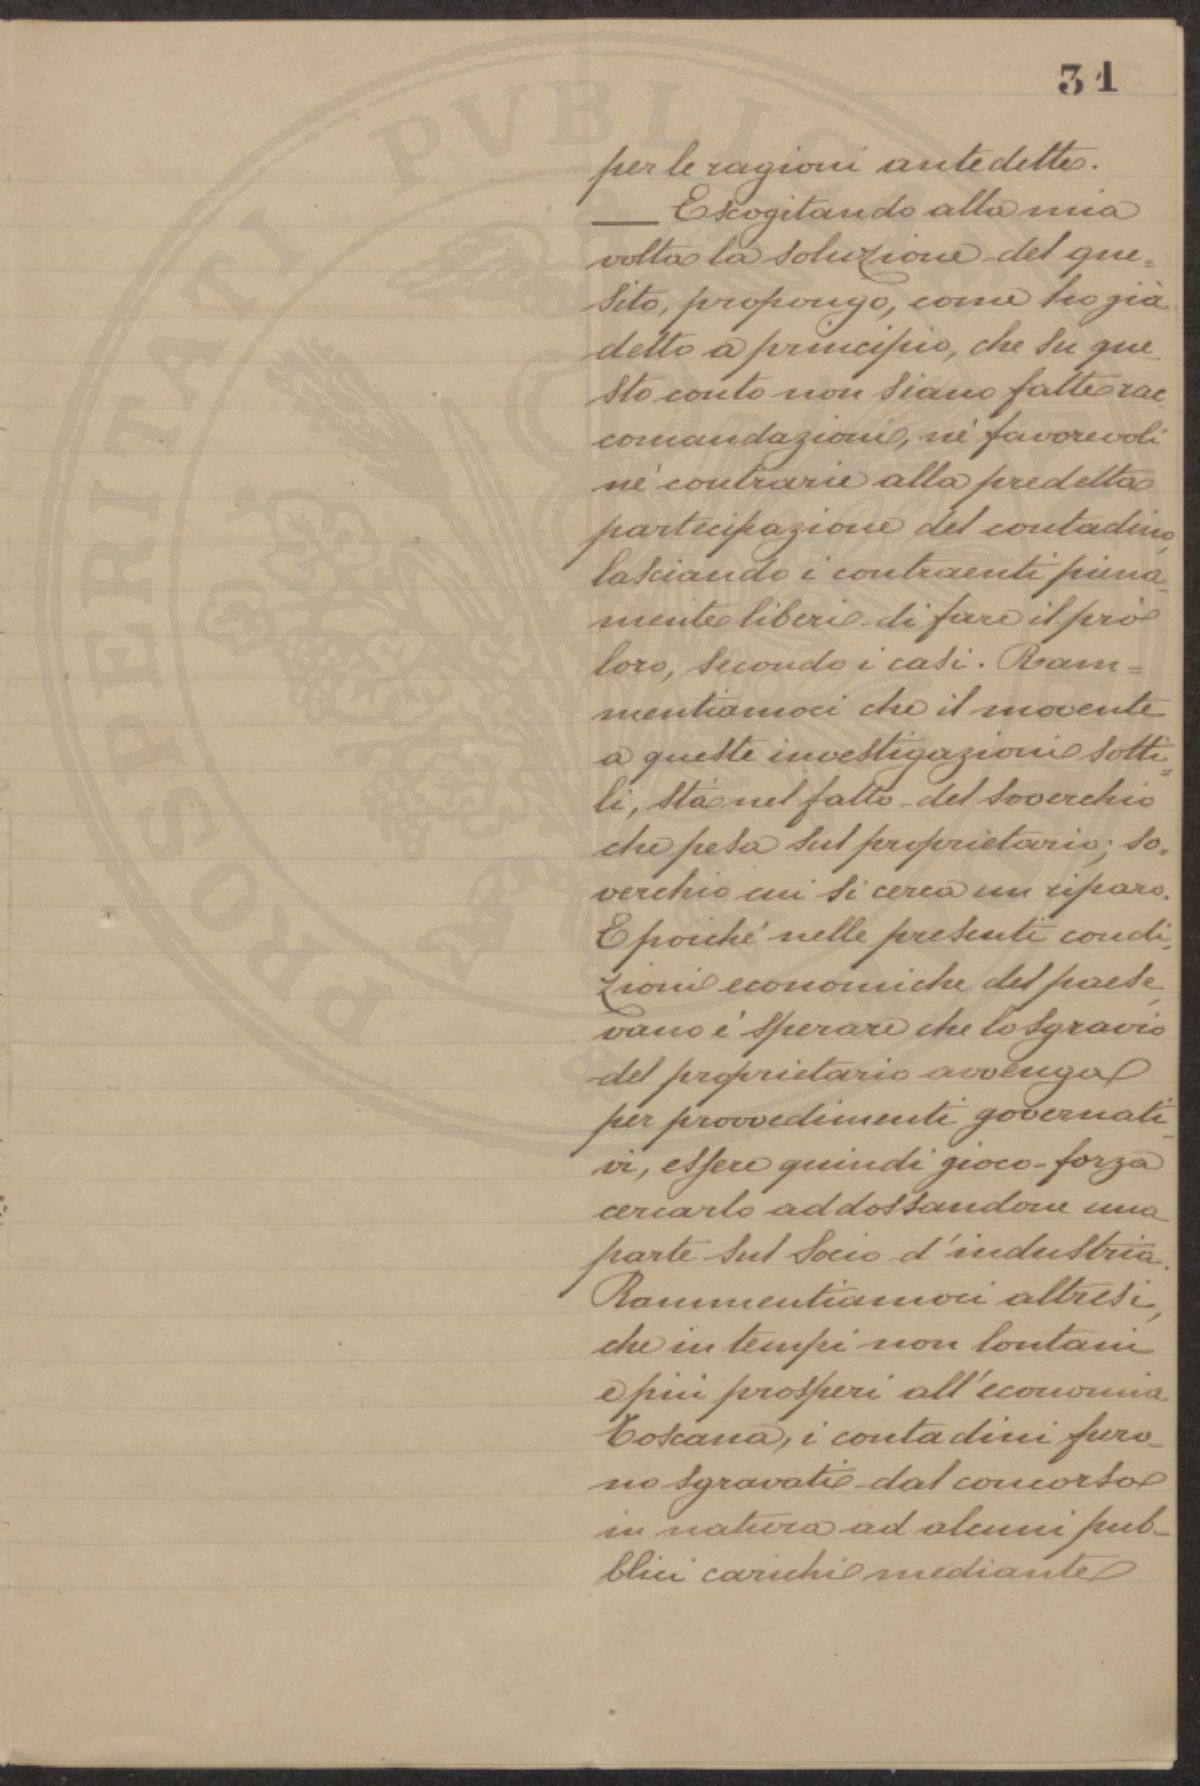 31
per le ragioni antedette.
— Escogitando alla mia
volta la soluzione del que=
sito, propongo, come ho già
detto a principio, che su que
sto conto non siano fatte rac
comandazioni, nè favorevoli
nè contrarie alla predetta
partecipazione del contadino,
lasciando i contraenti piena-
mente liberi di fare il prò
loro, secondo i casi. Ram=
mentiamoci che il movente
a queste investigazioni sotti=
li, stà nel fatto del soverchio
che pesa sul proprietario; so=
verchio cui si cerca un riparo.
E poichè nelle presenti condi=
zioni economiche del paese,
vano è sperare che lo sgravio
del proprietario avvenga
per provvedimenti governati-
vi, essere quindi gioco-forza
cercarlo addossandone una
parte sul Socio d'industria.
Rammentiamoci altresì,
che in tempi non lontani
e più prosperi all'economia
Toscana, i contadini furo-
no sgravati dal concorso
in natura ad alcuni pub-
blici carichi mediante
PROSPERITATI PVBLICAE